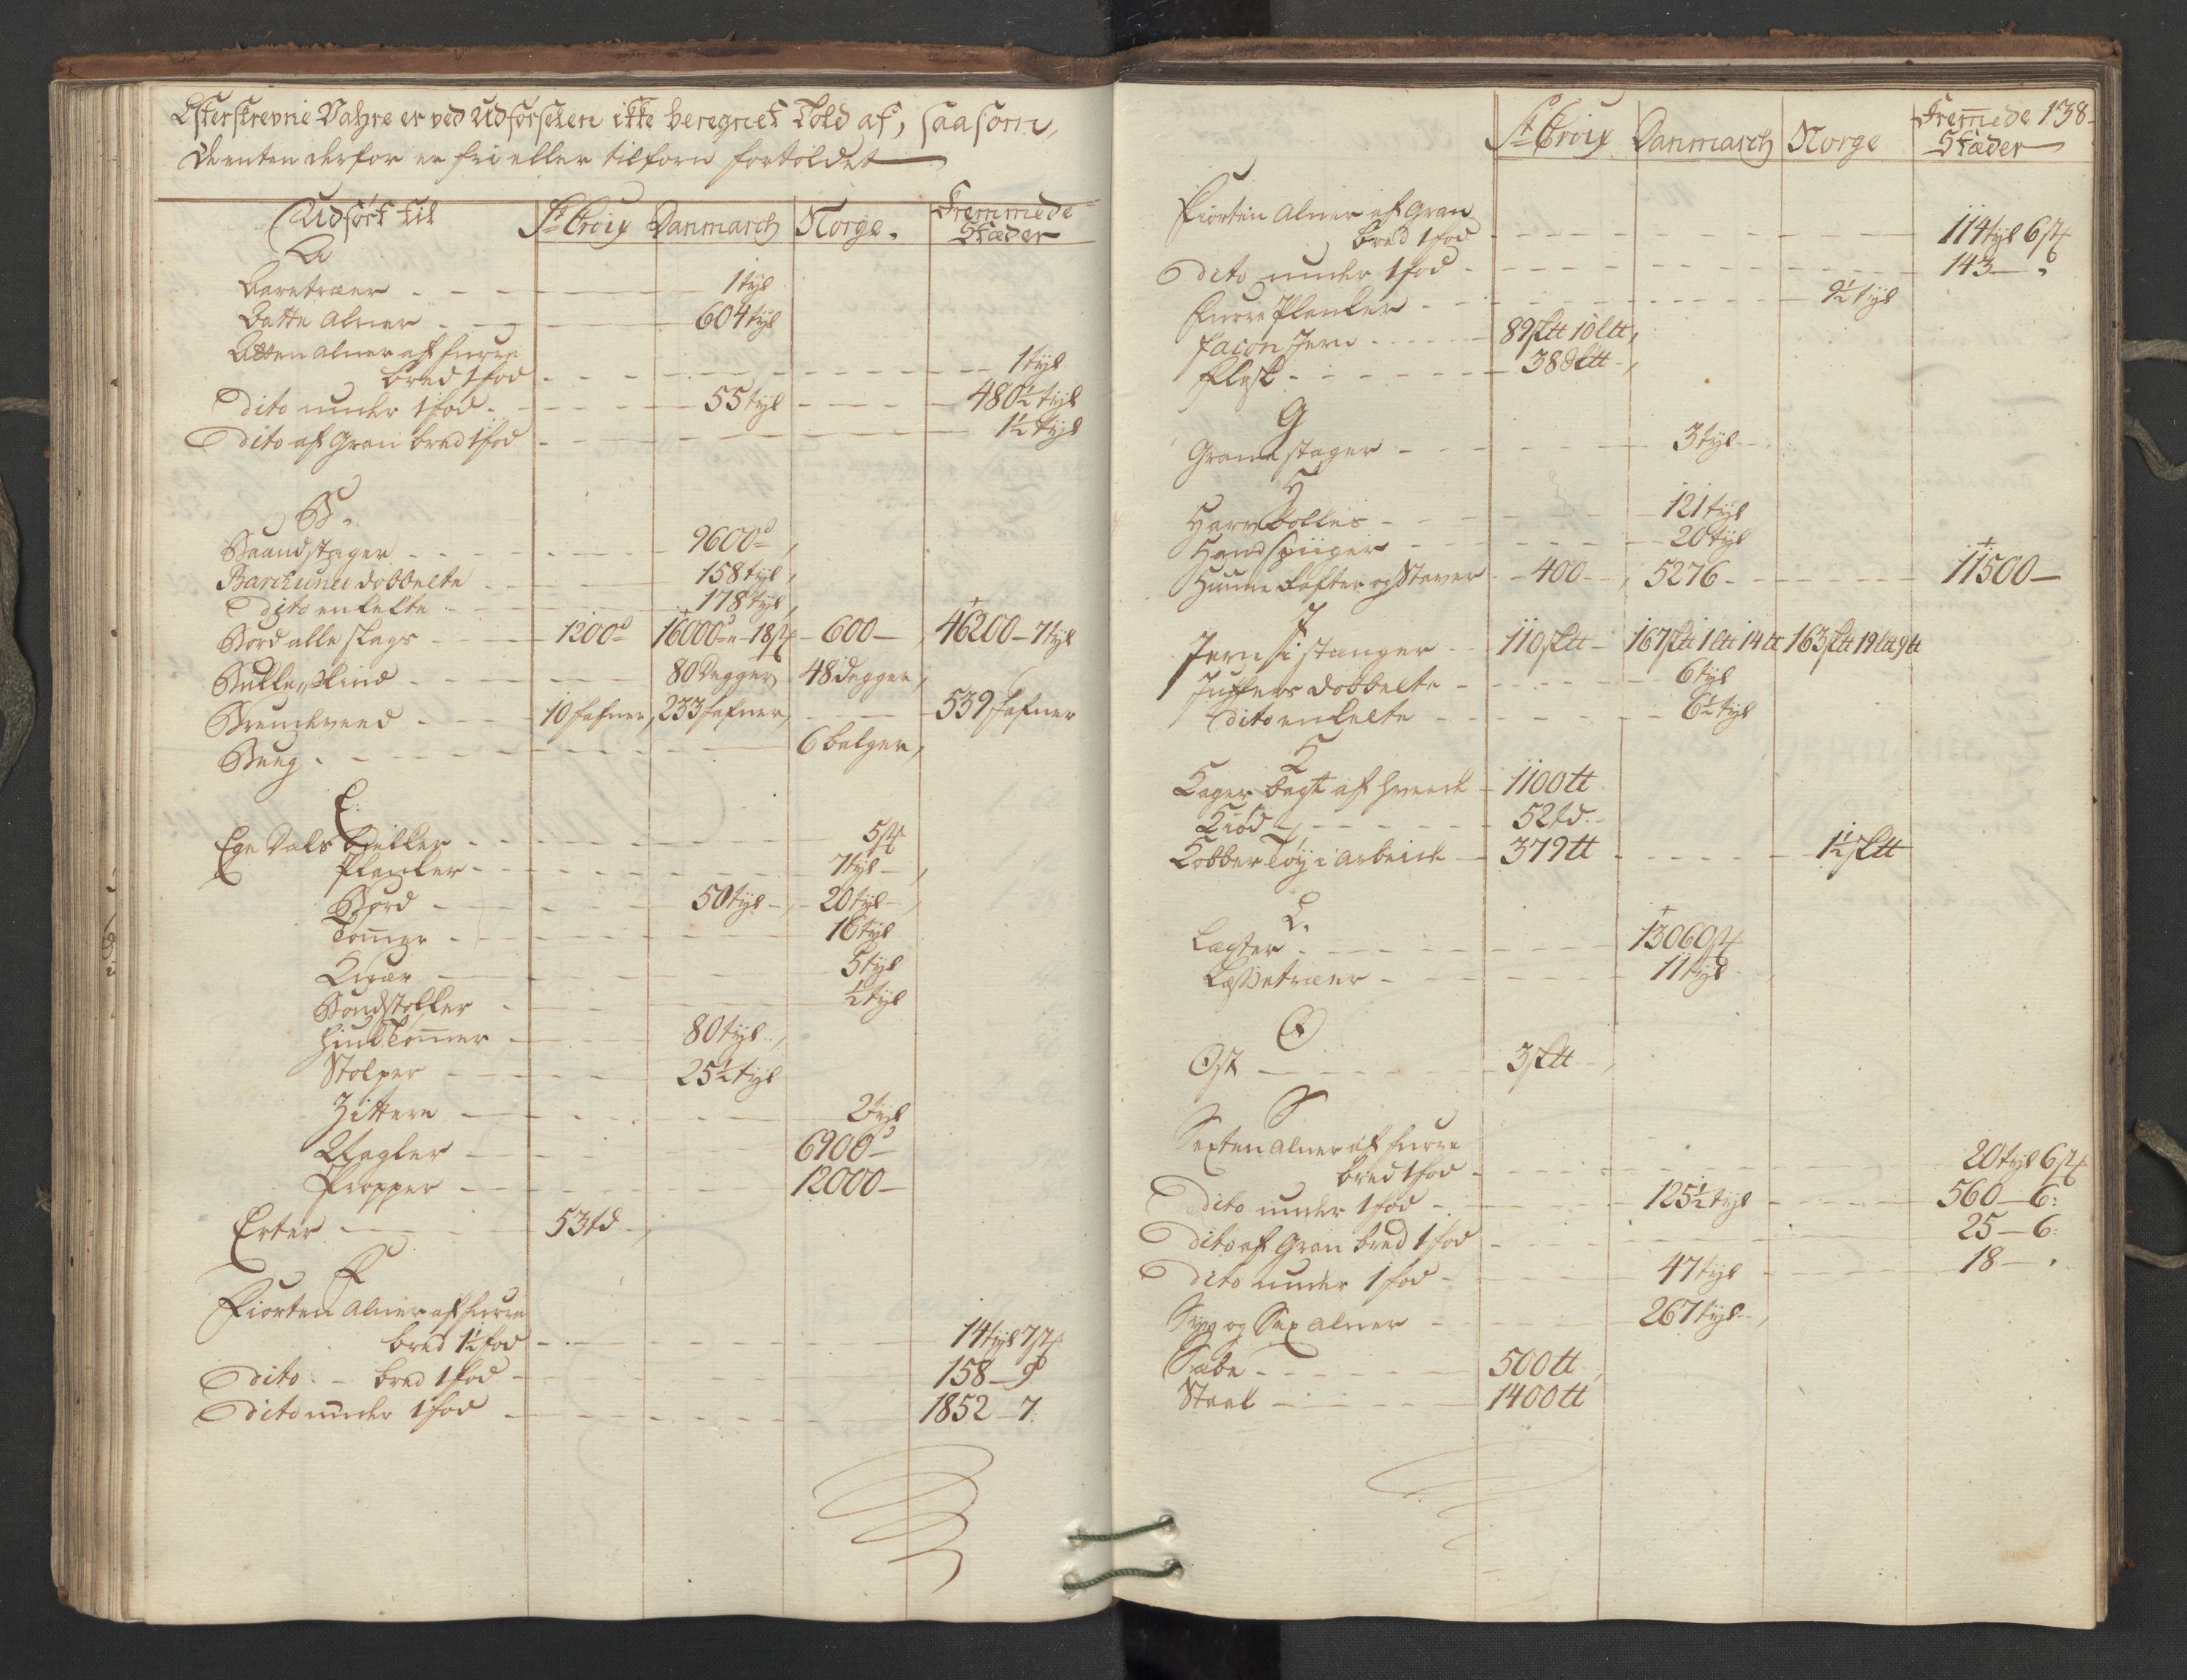 Efterskrevne Vahre er ved Udførselen ikke beregnet Told af, saasom,
de enten derfor er fri eller tilforn fortoldet
Udført til St Croix Danmarch Norge. Fremmede Stæder
A
Aaretræer 1 tyl
Aatte Alner 604 tyl
Atten Alner af furre
bred 1 fod 1 tyl
Dito under 1 fod 55 tyl 480½ tyl
Dito af Gran bred 1 fod 1½ tyl
B.
Baandstager 9600
Barckuner dobbelte 158 tyl
Dito enkelte 178 tyl
Bord alle slags 1200 16000 - 18 st 600 46200 - 7 tyl
Bukke Skind 80 Degger 48 degger
Brendeveed 10 fafner, 233 fafner, 539 fafner
Byug 6 balger,
E.
Ege Vals 5 st
Planker 7 tyl
Bord 50 tyl 20 tyl
Tom̅er 16 tyl
Knær 5 tyl
Bondstolker ½ tyl
Hiul Tom̅er 80 tyl
Stolper 25½ tyl
Zittere 2 tyl
Nagler 6900
Propper 12000
Erter 53 td
F
Fiorten Alner af furre
bred 1¼ fod 14 tyl 7 st
Dito bred 1 fod 158 - 9
Dito under 1 fod 1852 - 7.
St Croix Danmarch Norge Frem̅ede Stæder 138
Fiorten Alner af Gran
bred 1 fod 114 tyl 6 st
Dito under 1 fod 143
Furre Planker 9½ tyl
Facon Jern 89 sktt 10 ltt
Flesk 38 sktt
G
Grane stager 3 tyl
H
Harv Bolles 121 tyl
Handspiiger 20 tyl
Hume Kefter og Staver 400 5276 11500
J
Jern i stanger 110 sktt 167 sktt 1 ltt 14 tt 163 sktt 19 ltt 9 tt
Juffers dobbelte 6 tyl
Dito enkelte 6½ tyl
K
Kager bagt af Hveede 1100 tt
Kiød 52 td
Kobber Tøy i arbeide 379 tt 1½ sktt
L.
Lægter 13060 st
Læssetræer 11 tyl
O
Ost 3 sktt
S
Sexten Alner af furre
bred 1 fod 20 tyl 6 st
Dito under 1 fod 125½ tyl 560 - 6.
Dito af Gran bred 1 fod 25 - 6.
Dito under 1 fod 47 tyl 18
Syv og Sex Alner 267 tyl
Sæbe 500 tt
Staal 1400 tt